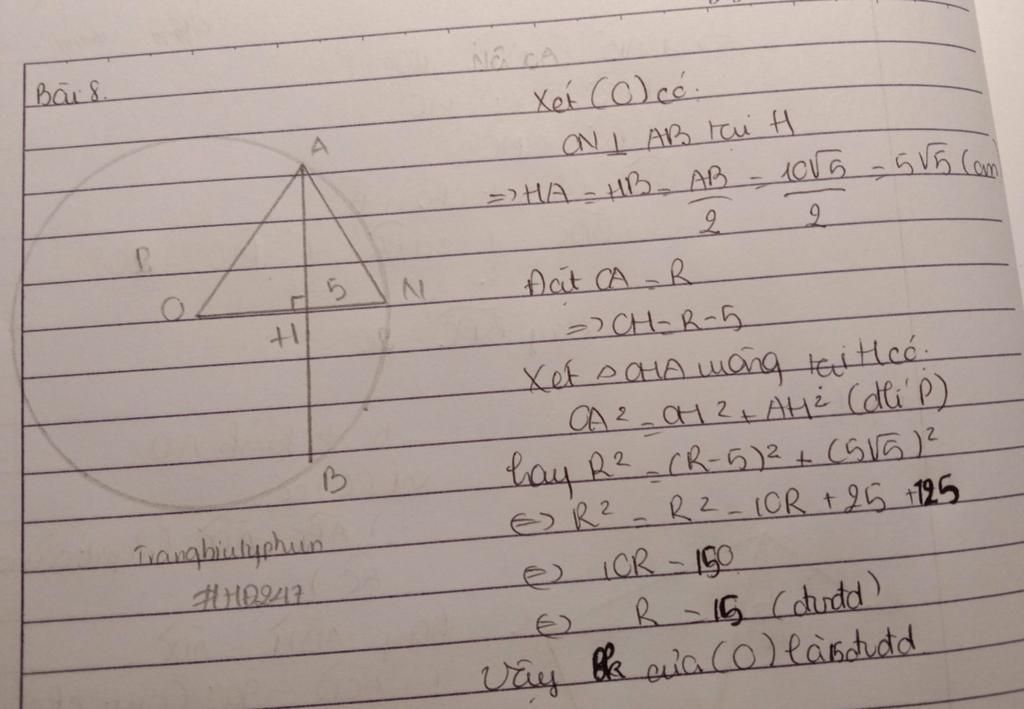 Bài 8.
A
R
O
5
N
H
B
Trangbiulyphun
#HĐ247
Xét (O) có:
ON ⊥ AB tại H
=> HA = HB = AB/2 = 10√5/2 = 5√5 (cm
Đặt OA = R
=> OH = R-5
Xét △OHA vuông tại H có:
OA² = OH² + AH² (đlí P)
hay R² = (R-5)² + (5√5)²
<=> R² = R² - 10R + 25 + 125
<=> 10R = 150
<=> R = 15 (đvđd)
Vậy Bk của (O) là 15 đvđd